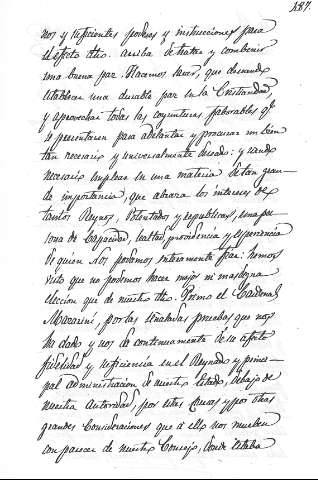 187.
nos y suficientes poderes y instrucciones para
el efecto dho. arriba de tratar y combenir
una buena paz. Hacemos saver, que deseando
establecer una durable paz en la Cristiandad,
y aprovechar todas las coyunturas faborables qe.
se presentaren para adelantar y procurar un bien
tan necesario y universalmente deseado: y siendo
necesario emplear en una materia de tan gran-
de importancia, que abraza los intereses de
tantos Reynos, Potentados y republicas, una per-
sona de Capacidad, lealtad, providencia y esperiencia
de quien Nos podamos enteramente fiar: hemos
visto que no podemos hacer mejor ni mas digna
eleccion que de nuestro dho. Primo el Cardenal
Mazarini, por las señaladas pruebas que nos
ha dado y nos da continuamente de su afecto
fidelidad y suficiencia en el Reynado y princi-
pal administracion de nuestro Estado, debajo de
nuestra Autoridad, por estas causas y por otras
grandes Consideraciones que a ello nos mueben
con parecer de nuestro Consejo, donde estaba